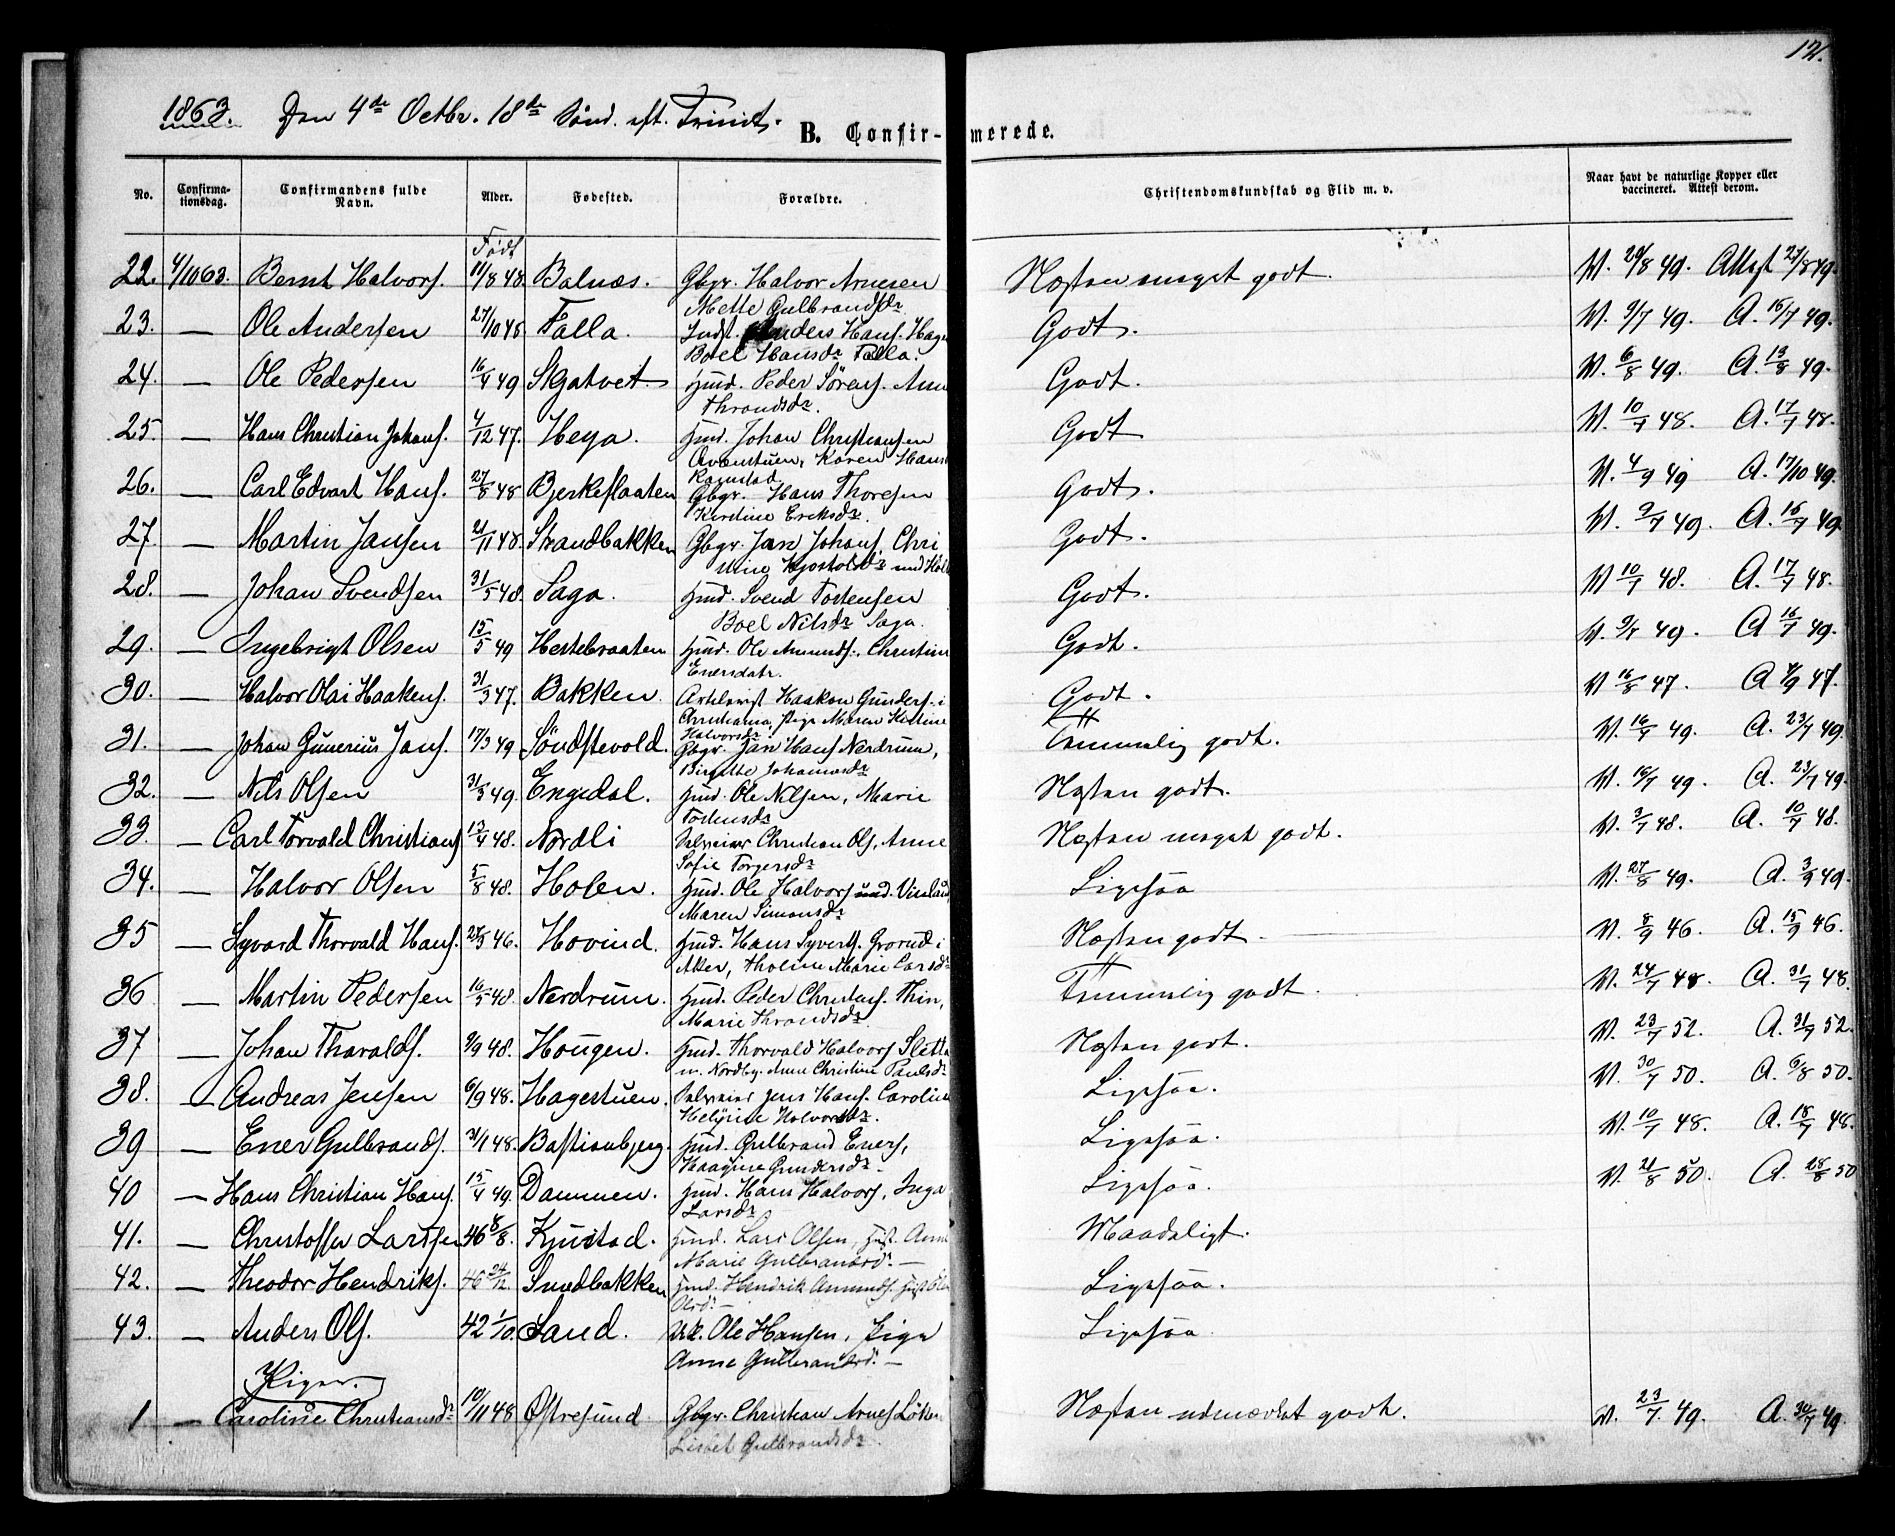 12.
1863. Den 4de Octbr. 18de Sønd. eft. Trinit.
B. Confirmerede.
No. Confirmationsdag. Confirmandens fulde Navn. Alder. Fødested. Forældre. Christendomskundskab og Flid m. v. Naar havt de naturlige Kopper eller vaccineret. Attest derom.
Født
22. 4/10 63. Bernt Halvors. 11/8 48. Balnæs. Gbgr. Halvor Arnesen Næsten meget godt. V. 20/8 49. Attest 27/8 49.
Mette Gulbrandsdr
23. — Ole Andersen 27/10 48. Falla. Indst. Anders Hans. Godt. V. 9/7 49. A. 16/7 49.
Boel Hansdr Falla.
24. — Ole Pedersen 16/4 49 Hmd. Peder Sörens. Godt. V. 6/8 49. A. 13/8 49.
Throndsdr.
25. — Hans Christian Johans. 4/12 47. Heya. Hmd. Johan Christiansen Godt V. 10/7 48. A. 17/7 48.
Karen Hans
Ramstad
26. — Carl Edvart Hans. 27/8 48 Bjerkeflaaten Gbgr. Hans Thoresen Godt. V. 4/9 49 A. 17/10 49.
Kirstine Eriksdr.
27. — Martin Jansen 2/11 48. Strandbakken Gbgr. Jan Johans. Chri Godt. V. 9/7 49. A. 16/7 49
28. — Johan Svendsen 31/5 48. Saga. Hmd. Svend Tostensen Godt. V. 10/7 48. A. 17/7 48.
Boel Nilsdr Saga.
29. — Ingebrigt Olsen 15/5 49 Hestebraaten Hmd. Ole Amunds., Christine Godt. V. 9/7 49. A 16/7 49.
Enersdatr.
30. — Halvor Olai Haakens. 31/3 47. Bakken. Haakon Gunders. i Godt. V 16/8 47. A 47.
Christiania, Pige Maren Kirstine
Halvorsdr.
31. — Johan Gunerius Jans. 17/3 49 Söndstevold. Gbgr. Jan Hans Nerdrum, Temmelig godt. V. 16/7 49. A. 23/7 49.
Birgitte Johannesdr
32. — Nils Olsen 31/3 49. Engedal. Hmd. Ole Nilsen, Marie Næsten godt. V. 16/7 49. A. 23/7 49.
Tostensdr
33. — Carl Torvald Christians 13/4 48. Nordli Selveier Christian Ols, Anne Næsten meget godt. V. 3/7 48. A. 10/7 48.
Sofie Torgersdr
34. — Halvor Olsen 5/8 48. Holen. Hmd. Ole Halvors Ligesaa V. 27/8 49. A. 3/9 49.
Maren Simonsdr
35 — Syvard Thorvald Hans. 46. Hovind. Hmd. Hans Syverts. Grorud i Næsten godt. V. 8/9 46. A. 15/9 46.
Aker, Tholine Marie Larsdr
36 — Martin Pedersen 16/5 48. Nerdrum. Hmd. Peder Christens. Thin, Temmelig godt. V. 24/7 48. A. 31/7 48.
Marie Throndsdr.
37 — Johan Tharalds. 9/9 48. Hougen. Hmd. Thorvald Halvors Næsten godt. V. 23/7 52. A. 31/7 52.
u. Nordby. Anne Christine Paulsdr
38. — Andreas Jensen 6/9 48. Hagestuen. Selveier Jens Hans. Caroline Ligesaa. V. 30/7 50. A. 6/8 50.
Halvorsdr.
39 — Ener Gulbrands. 31/1 48. Bastianbjerg. Hmd. Gulbrand Eners, Ligesaa. V. 10/7 48. A. 18/7 48.
Haagine Gundersdr.
40 — Hans Christian Hans. 15/4 49. Dammen. Hmd. Hans Halvors, Inga Ligesaa. V. 21/8 50. A. 28/8 50
Larsdr
41. — Christoffer Larsen 46 8/8. Kjustad. Hmd. Lars Olsen, Hust. Anne Maadeligt.
Marie Gulbrandsd. —
42. — Theodor Hendriks. 46 24/12. Sundbakken Hmd. Hendrik Amunds. Hust. Ligesaa.
Olsd. —
43. — Anders Ols. 42 1/10. Sand. Ole Hansen, Pige Ligesaa.
Anne Gulbrandsd. —
Piger.
1 — Caroline Christiansdr 10/11 48 Østresund Gbgr. Christian Arnes Næsten udmærket godt. V. 23/7 49. A. 30/7 49
Lisbet Gulbrandsdr.